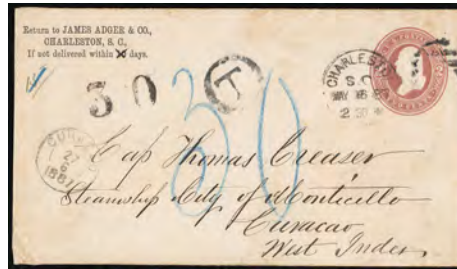 Return to JAMES ADGER & CO.,
CHARLESTON, S. C.,
If not delivered within days.
30
T
CHARLESTON
S. C.
2 30
30
CURAÇAO
27
6
1887
Cap Thomas Creaser
Steamship City of Monticello
Curacao
West Indies